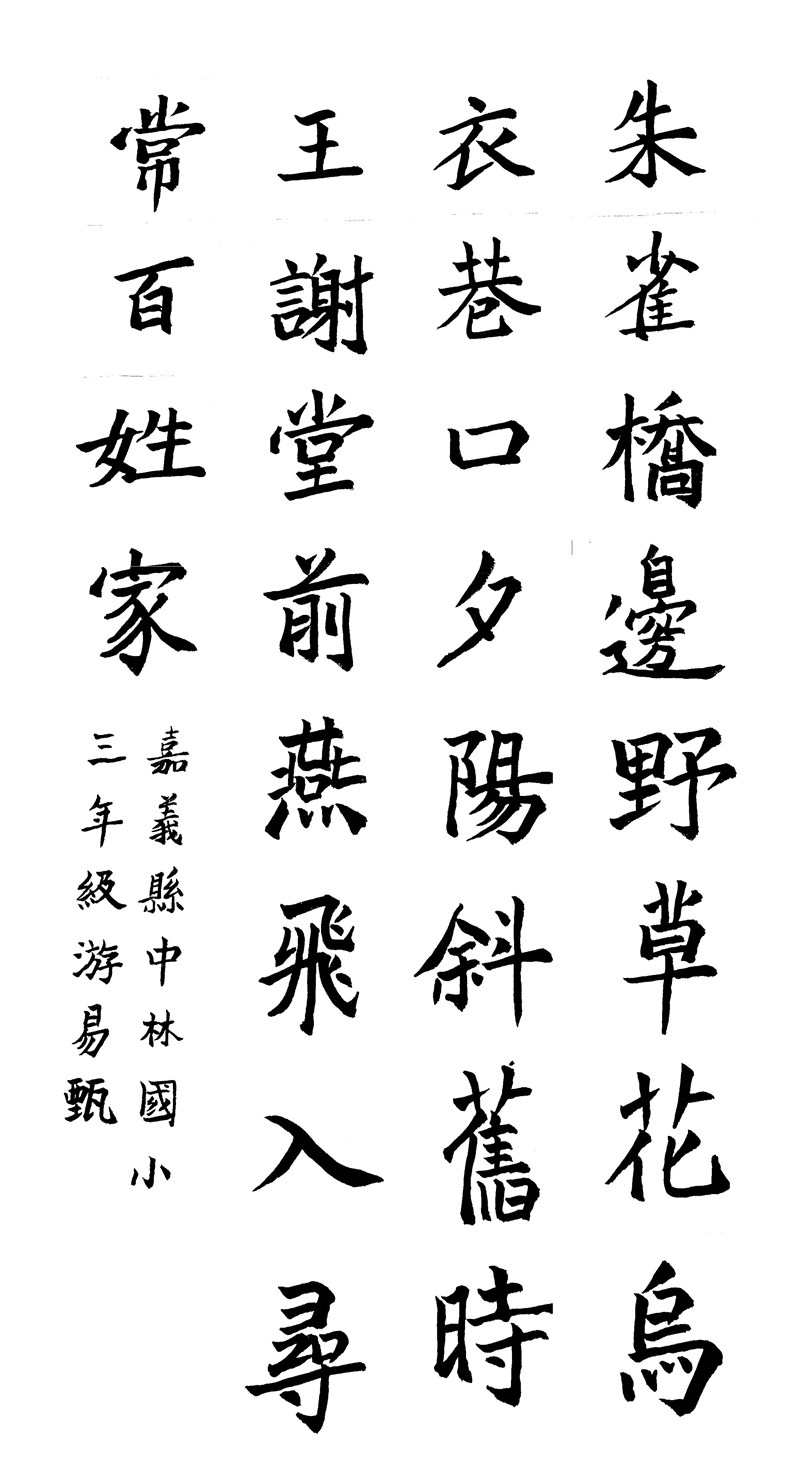 朱雀橋邊野草花烏
衣巷口夕陽斜舊時
王謝堂前燕飛入尋
常百姓家
嘉義縣中林國小
三年級游易甄